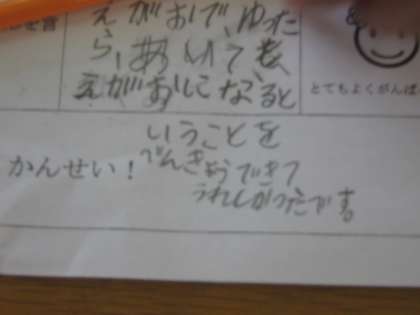 えがおで、ゆった
ら、あいても、
えがおになると
とてもよくがんば
いうことを
かんせい！
べんきょうできて
うれしかったです。